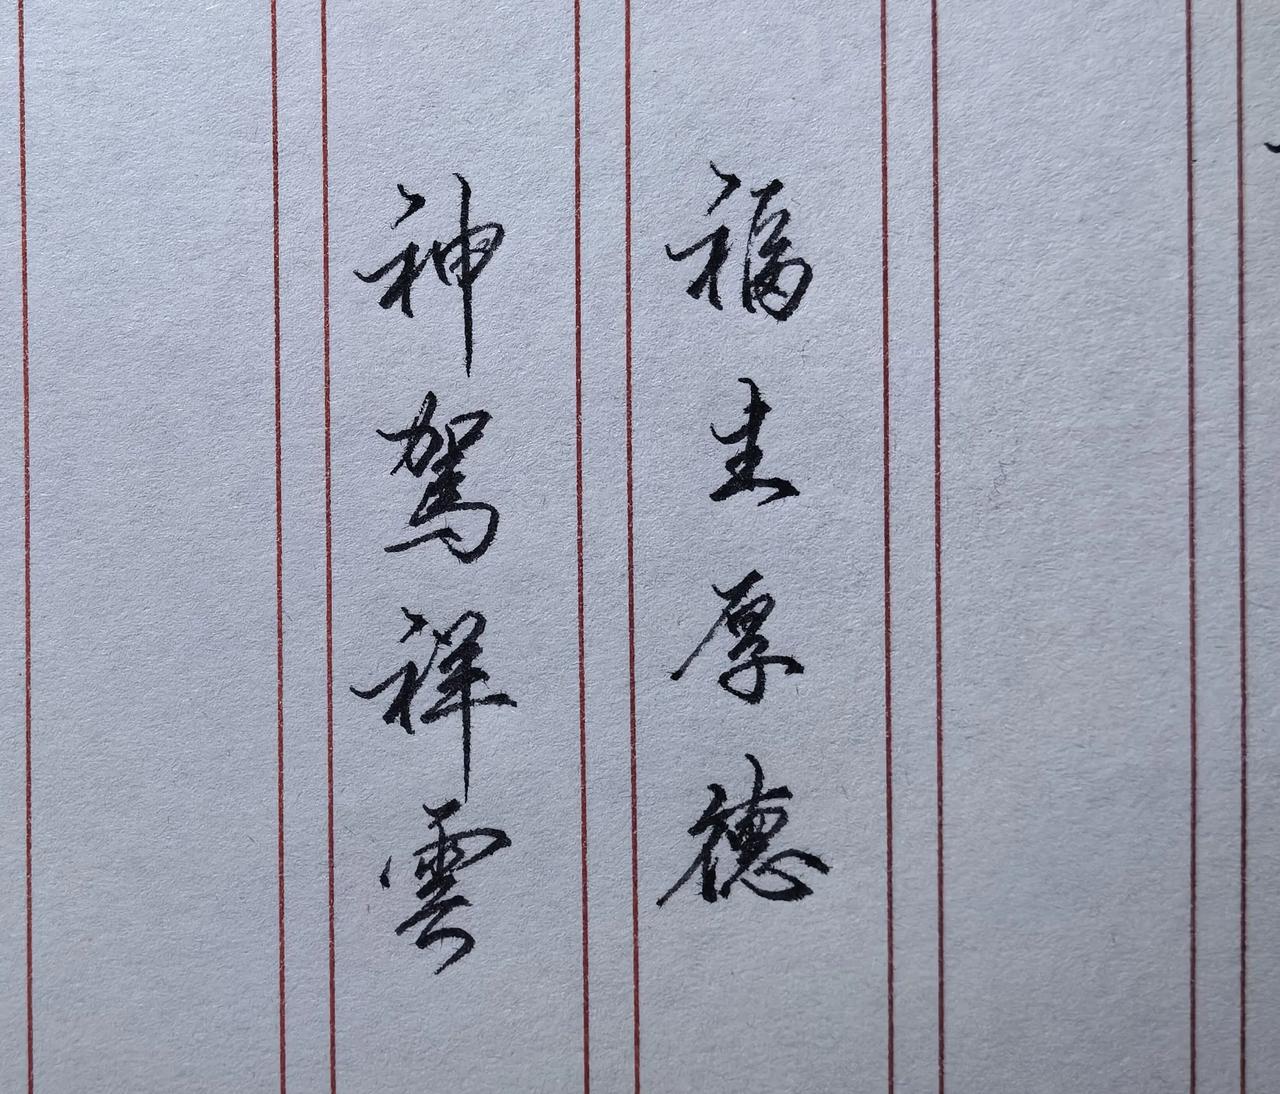 福生厚德
神驾祥雲